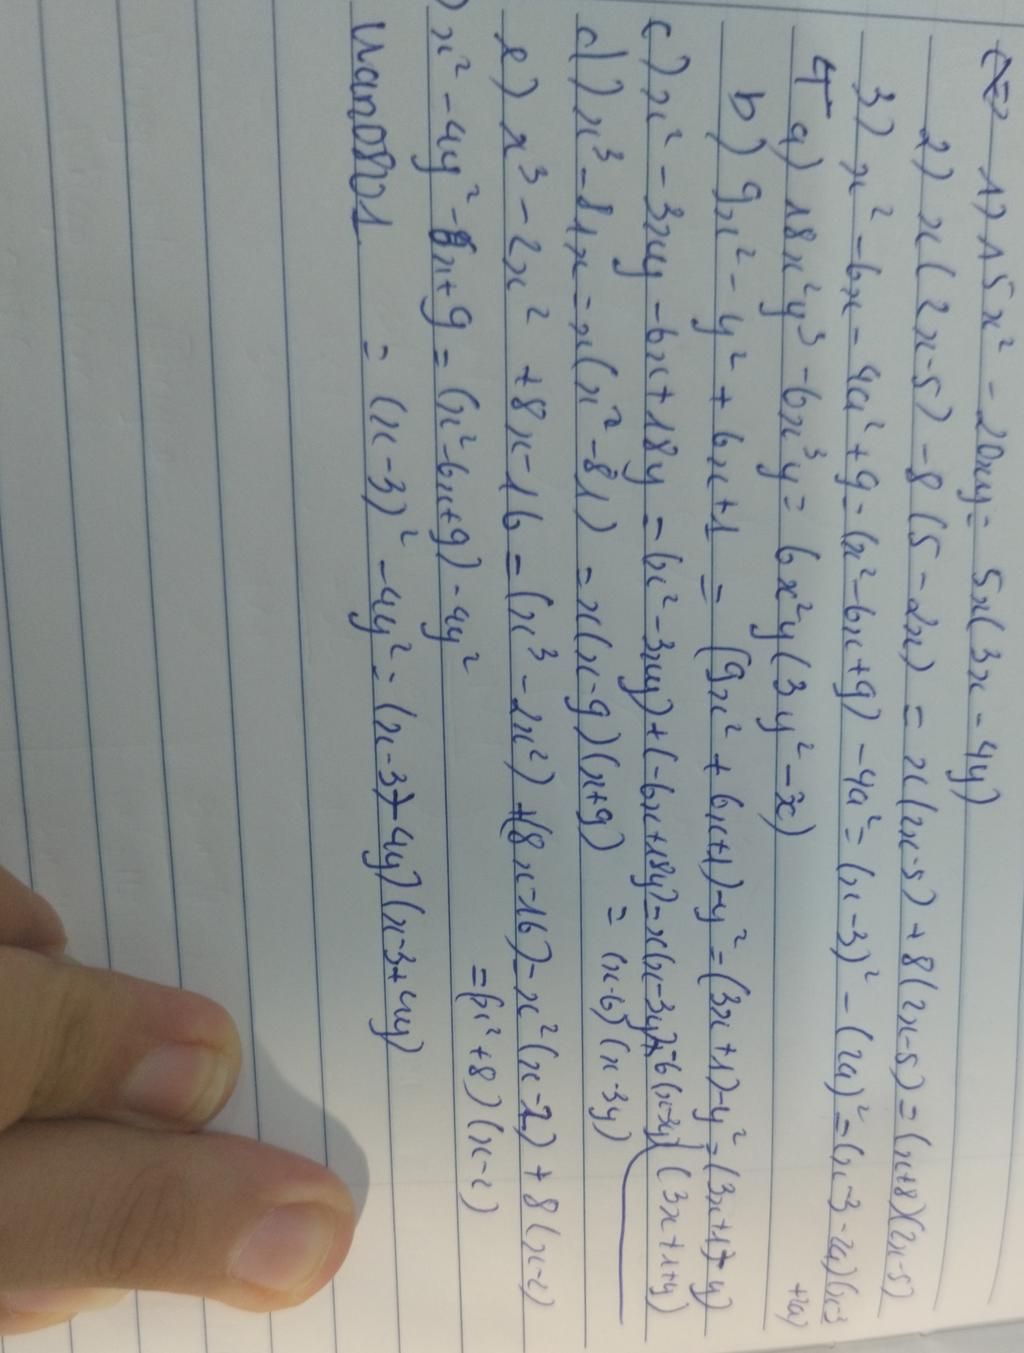 1) 15x² - 20xy = 5x(3x - 4y)
2) x(2x-5) - 8(5-2x) = x(2x-5) + 8(2x-5) = (x+8)(2x-5)
3) x² - 6x - 4a² + 9 = (x² - 6x + 9) - 4a² = (x-3)² - (2a)² = (x-3-2a)(x-3
+2a)
4 a) 18x²y³ - 6x³y = 6x²y(3y² - x)
b) 9x² - y² + 6x + 1 = (9x² + 6x + 1) - y² = (3x+1) - y² = (3x+1 - y)
(3x+1+y)
c) x² - 3xy - 6x + 18y = (x² - 3xy) + (-6x + 18y) = x(x-3y) - 6(x-3y)
= (x-6)(x-3y)
d) x³ - 81x = x(x² - 81) = x(x-9)(x+9)
e) x³ - 2x² + 8x - 16 = (x³ - 2x²) + (8x - 16) = x²(x-2) + 8(x-2)
= (x² + 8)(x-2)
) x² - 4y² - 6x + 9 = (x² - 6x + 9) - 4y²
= (x-3)² - 4y² = (x-3 - 4y)(x-3 + 4y)
Wan0801